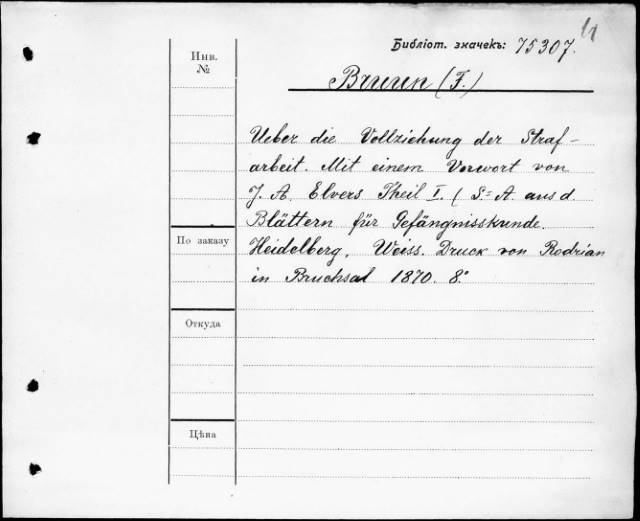 Библіот. значекъ: 75307.
Инв.
№
Bruun (F.)
Ueber die Vollziehung der Straf-
arbeit. Mit einem Vorwort von
J. A. Elvers. Theil I. (S=A. aus d.
Blättern für Gefängnisskunde.
По заказу
Heidelberg. Weiss. Druck von Rodrian
in Bruchsal 1870. 8°
Откуда
Цѣна